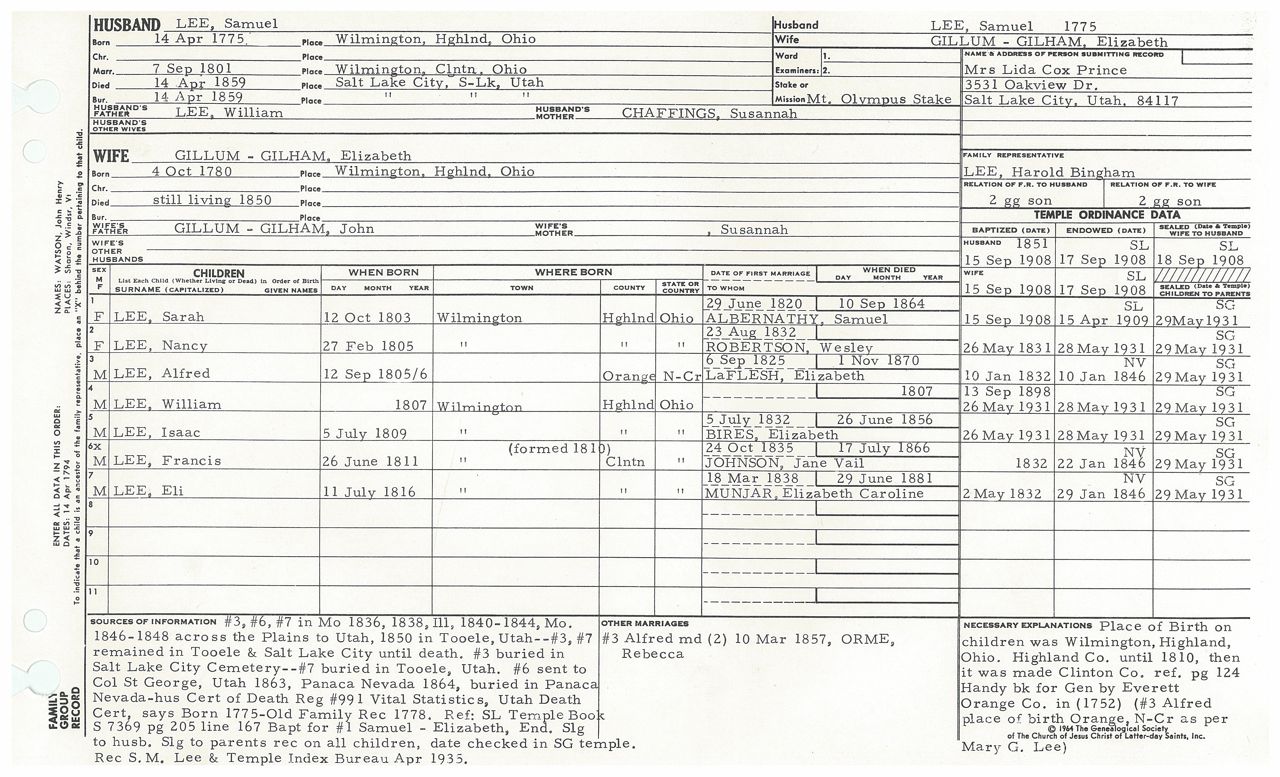 HUSBAND LEE, Samuel
Born 14 Apr 1775 Place Wilmington, Hghlnd, Ohio
Chr. Place
Marr. 7 Sep 1801 Place Wilmington, Clntn. Ohio
Died 14 Apr 1859 Place Salt Lake City, S-Lk, Utah
Bur. 14 Apr 1859 Place " " "
HUSBAND'S FATHER LEE, William HUSBAND'S MOTHER CHAFFINGS, Susannah
HUSBAND'S OTHER WIVES
WIFE GILLUM - GILHAM, Elizabeth
Born 4 Oct 1780 Place Wilmington, Hghlnd, Ohio
Chr. Place
Died still living 1850 Place
Bur. Place
WIFE'S FATHER GILLUM - GILHAM, John WIFE'S MOTHER , Susannah
WIFE'S OTHER HUSBANDS
Husband LEE, Samuel 1775
Wife GILLUM - GILHAM, Elizabeth
Ward 1.
Examiners: 2.
Stake or Mission Mt. Olympus Stake
NAME & ADDRESS OF PERSON SUBMITTING RECORD
Mrs Lida Cox Prince
3531 Oakview Dr.
Salt Lake City, Utah, 84117
FAMILY REPRESENTATIVE
LEE, Harold Bingham
RELATION OF F.R. TO HUSBAND RELATION OF F.R. TO WIFE
2 gg son 2 gg son
TEMPLE ORDINANCE DATA
BAPTIZED (DATE) ENDOWED (DATE) SEALED (Date & Temple) WIFE TO HUSBAND
HUSBAND 1851 SL SL
15 Sep 1908 17 Sep 1908 18 Sep 1908
WIFE SL
15 Sep 1908 17 Sep 1908 SEALED (Date & Temple) CHILDREN TO PARENTS
SEX M F CHILDREN WHEN BORN WHERE BORN DATE OF FIRST MARRIAGE WHEN DIED
List Each Child (Whether Living or Dead) in Order of Birth DAY MONTH YEAR
SURNAME (CAPITALIZED) GIVEN NAMES DAY MONTH YEAR TOWN COUNTY STATE OR COUNTRY TO WHOM
1 29 June 1820 10 Sep 1864 SL SG
F LEE, Sarah 12 Oct 1803 Wilmington Hghlnd Ohio ALBERNATHY, Samuel 15 Sep 1908 15 Apr 1909 29 May 1931
2 23 Aug 1832 SG
F LEE, Nancy 27 Feb 1805 " " " ROBERTSON, Wesley 26 May 1831 28 May 1931 29 May 1931
3 6 Sep 1825 1 Nov 1870 NV SG
M LEE, Alfred 12 Sep 1805/6 Orange N-Cr LaFLESH, Elizabeth 10 Jan 1832 10 Jan 1846 29 May 1931
4 1807 13 Sep 1898 SG
M LEE, William 1807 Wilmington Hghlnd Ohio 26 May 1931 28 May 1931 29 May 1931
5 5 July 1832 26 June 1856 SG
M LEE, Isaac 5 July 1809 " " " BIRES, Elizabeth 26 May 1931 28 May 1931 29 May 1931
6X (formed 1810) 24 Oct 1835 17 July 1866 NV SG
M LEE, Francis 26 June 1811 " Clntn " JOHNSON, Jane Vail 1832 22 Jan 1846 29 May 1931
7 18 Mar 1838 29 June 1881 NV SG
M LEE, Eli 11 July 1816 " " " MUNJAR, Elizabeth Caroline 2 May 1832 29 Jan 1846 29 May 1931
8
9
10
11
SOURCES OF INFORMATION #3, #6, #7 in Mo 1836, 1838, Ill, 1840-1844, Mo.
1846-1848 across the Plains to Utah, 1850 in Tooele, Utah--#3, #7
remained in Tooele & Salt Lake City until death. #3 buried in
Salt Lake City Cemetery--#7 buried in Tooele, Utah. #6 sent to
Col St George, Utah 1863, Panaca Nevada 1864, buried in Panaca
Nevada-hus Cert of Death Reg #991 Vital Statistics, Utah Death
Cert, says Born 1775-Old Family Rec 1778. Ref: SL Temple Book
S 7369 pg 205 line 167 Bapt for #1 Samuel - Elizabeth, End. Slg
to husb. Slg to parents rec on all children, date checked in SG temple.
Rec S.M. Lee & Temple Index Bureau Apr 1935.
OTHER MARRIAGES
#3 Alfred md (2) 10 Mar 1857, ORME,
Rebecca
NECESSARY EXPLANATIONS Place of Birth on
children was Wilmington, Highland,
Ohio. Highland Co. until 1810, then
it was made Clinton Co. ref. pg 124
Handy bk for Gen by Everett
Orange Co. in (1752) (#3 Alfred
place of birth Orange, N-Cr as per
© 1964 The Genealogical Society
of The Church of Jesus Christ of Latter-day Saints, Inc.
Mary G. Lee)
FAMILY GROUP RECORD
ENTER ALL DATA IN THIS ORDER:
NAMES: WATSON, John Henry
DATES: 14 Apr 1794
PLACES: Sharon, Windsr, Vt
To indicate that a child is an ancestor of the family representative, place an "X" behind the number pertaining to that child.